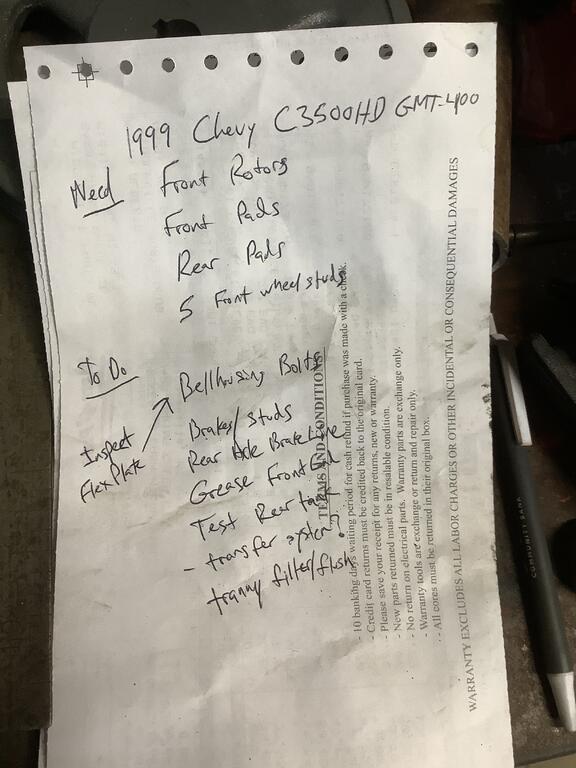 1999 Chevy C3500HD GMT-400
Need
Front Rotors
Front Pads
Rear Pads
5 Front wheel studs
To Do
Bellhousing Bolts
Inspect
Flex Plate
Brakes/studs
Rear Axle Brake Line
Grease Front
Test Rear tank
- transfer system?
tranny filter/flush
TERMS AND CONDITIONS
- 10 banking days waiting period for cash refund if purchase was made with a check.
- Credit card returns must be credited back to the original card.
- Please save your receipt for any returns, new or warranty.
- New parts returned must be in resalable condition.
- No return on electrical parts. Warranty parts are exchange only.
- Warranty tools are exchange or return and repair only.
- All cores must be returned in their original box.
WARRANTY EXCLUDES ALL LABOR CHARGES OR OTHER INCIDENTAL OR CONSEQUENTIAL DAMAGES
COMMUNITY BANK